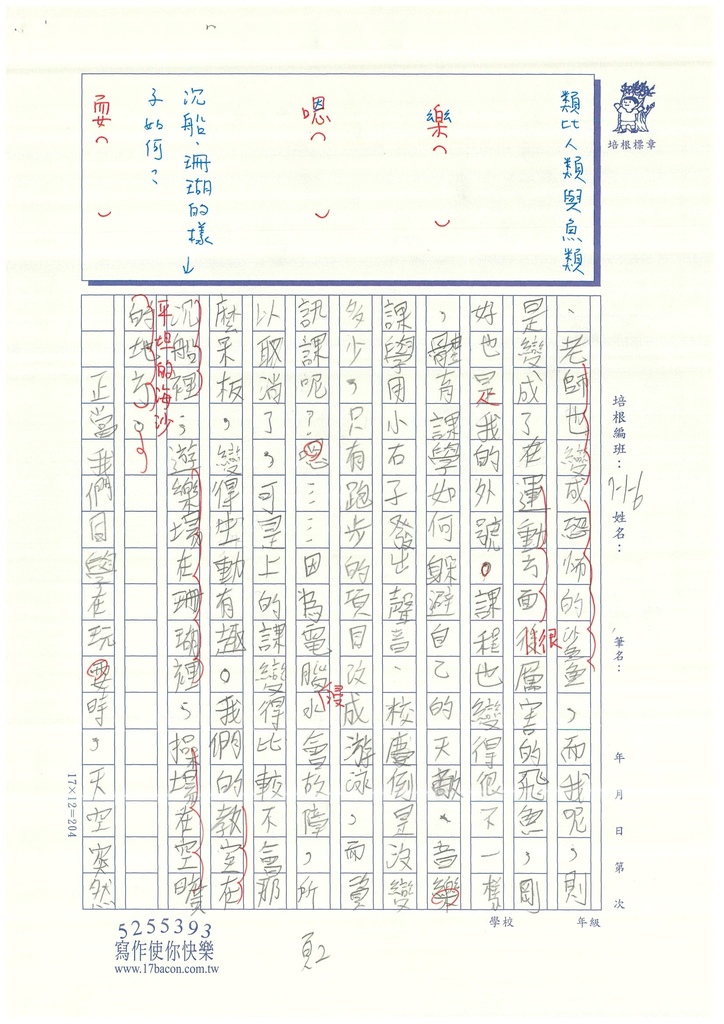 類比人類與魚類
樂︵ ︶
嗯︵ ︶
沉船、珊瑚的樣↓
子如何？
耍︵ ︶
培根標章
培根編班：7-1-6 姓名： 筆名： 年 月 日 第 次
學校 年級
、老師也變成恐怖的鯊魚，而我呢，則
是變成了在運動方面很厲害的飛魚，剛
好也是我的外號。課程也變得很不一樣
，體育課學如何躲避自己的天敵、音樂
課學用小石子發出聲音、校慶倒是沒變
多少，只有跑步的項目改成游泳，而資
訊課呢？嗯……因為電腦浸水會故障，所
以取消了，可是上的課變得比較不會那
麼呆板，變得生動有趣。我們的教室在
沉船裡；遊樂場在珊瑚裡，操場在空曠
的地方。
平坦的海沙
正當我們同學在玩耍時，天空突然
17×12=204
5255393
寫作使你快樂
www.17bacon.com.tw
頁2